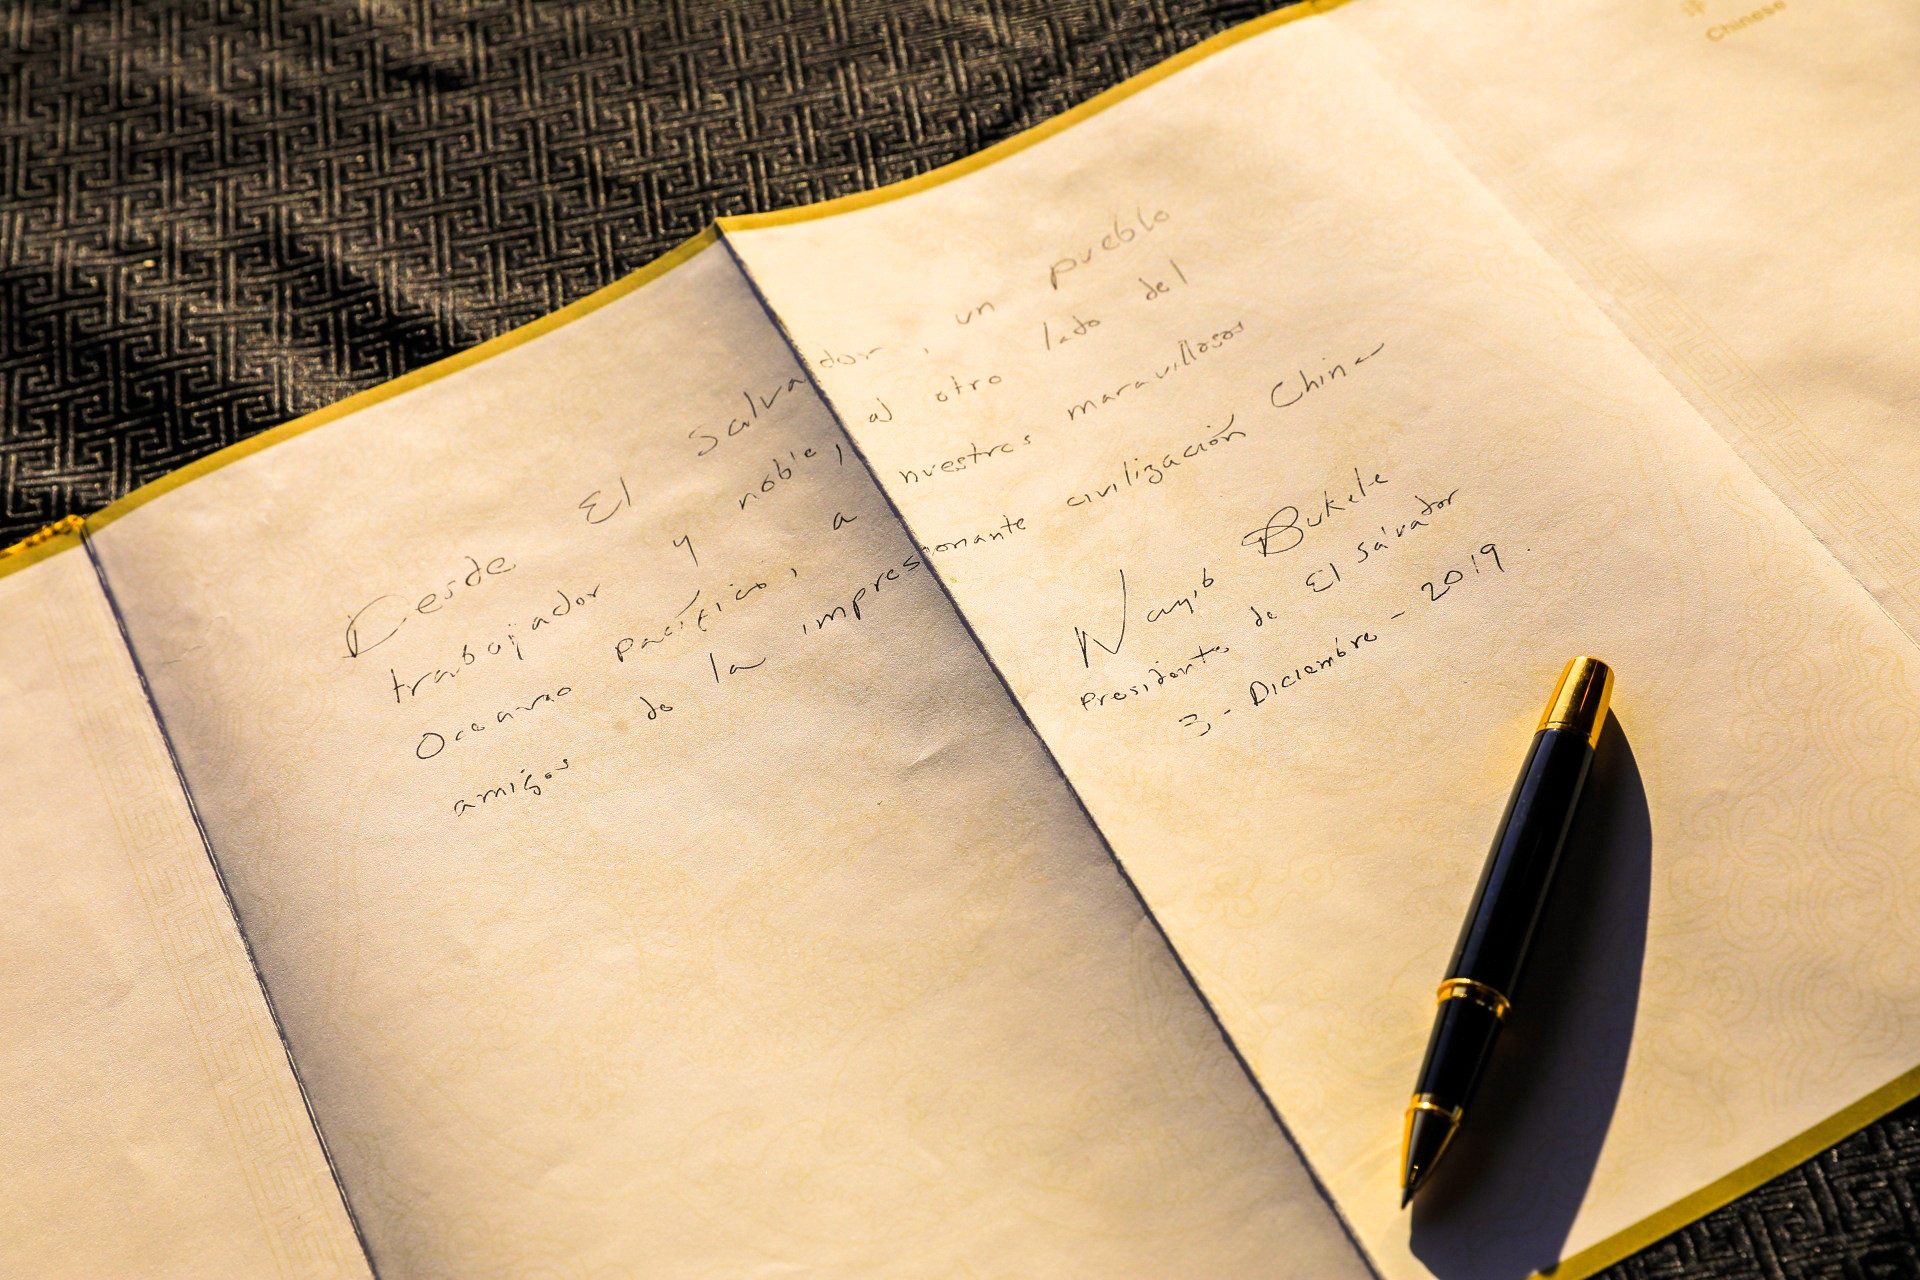 Desde El Salvador, un pueblo
trabajador y noble, al otro lado del
Oceano pacífico, a nuestros maravillosos
amigos de la impresionante civilización China
Nayib Bukele
Presidente de El Salvador
3 - Diciembre - 2019.
Chinese